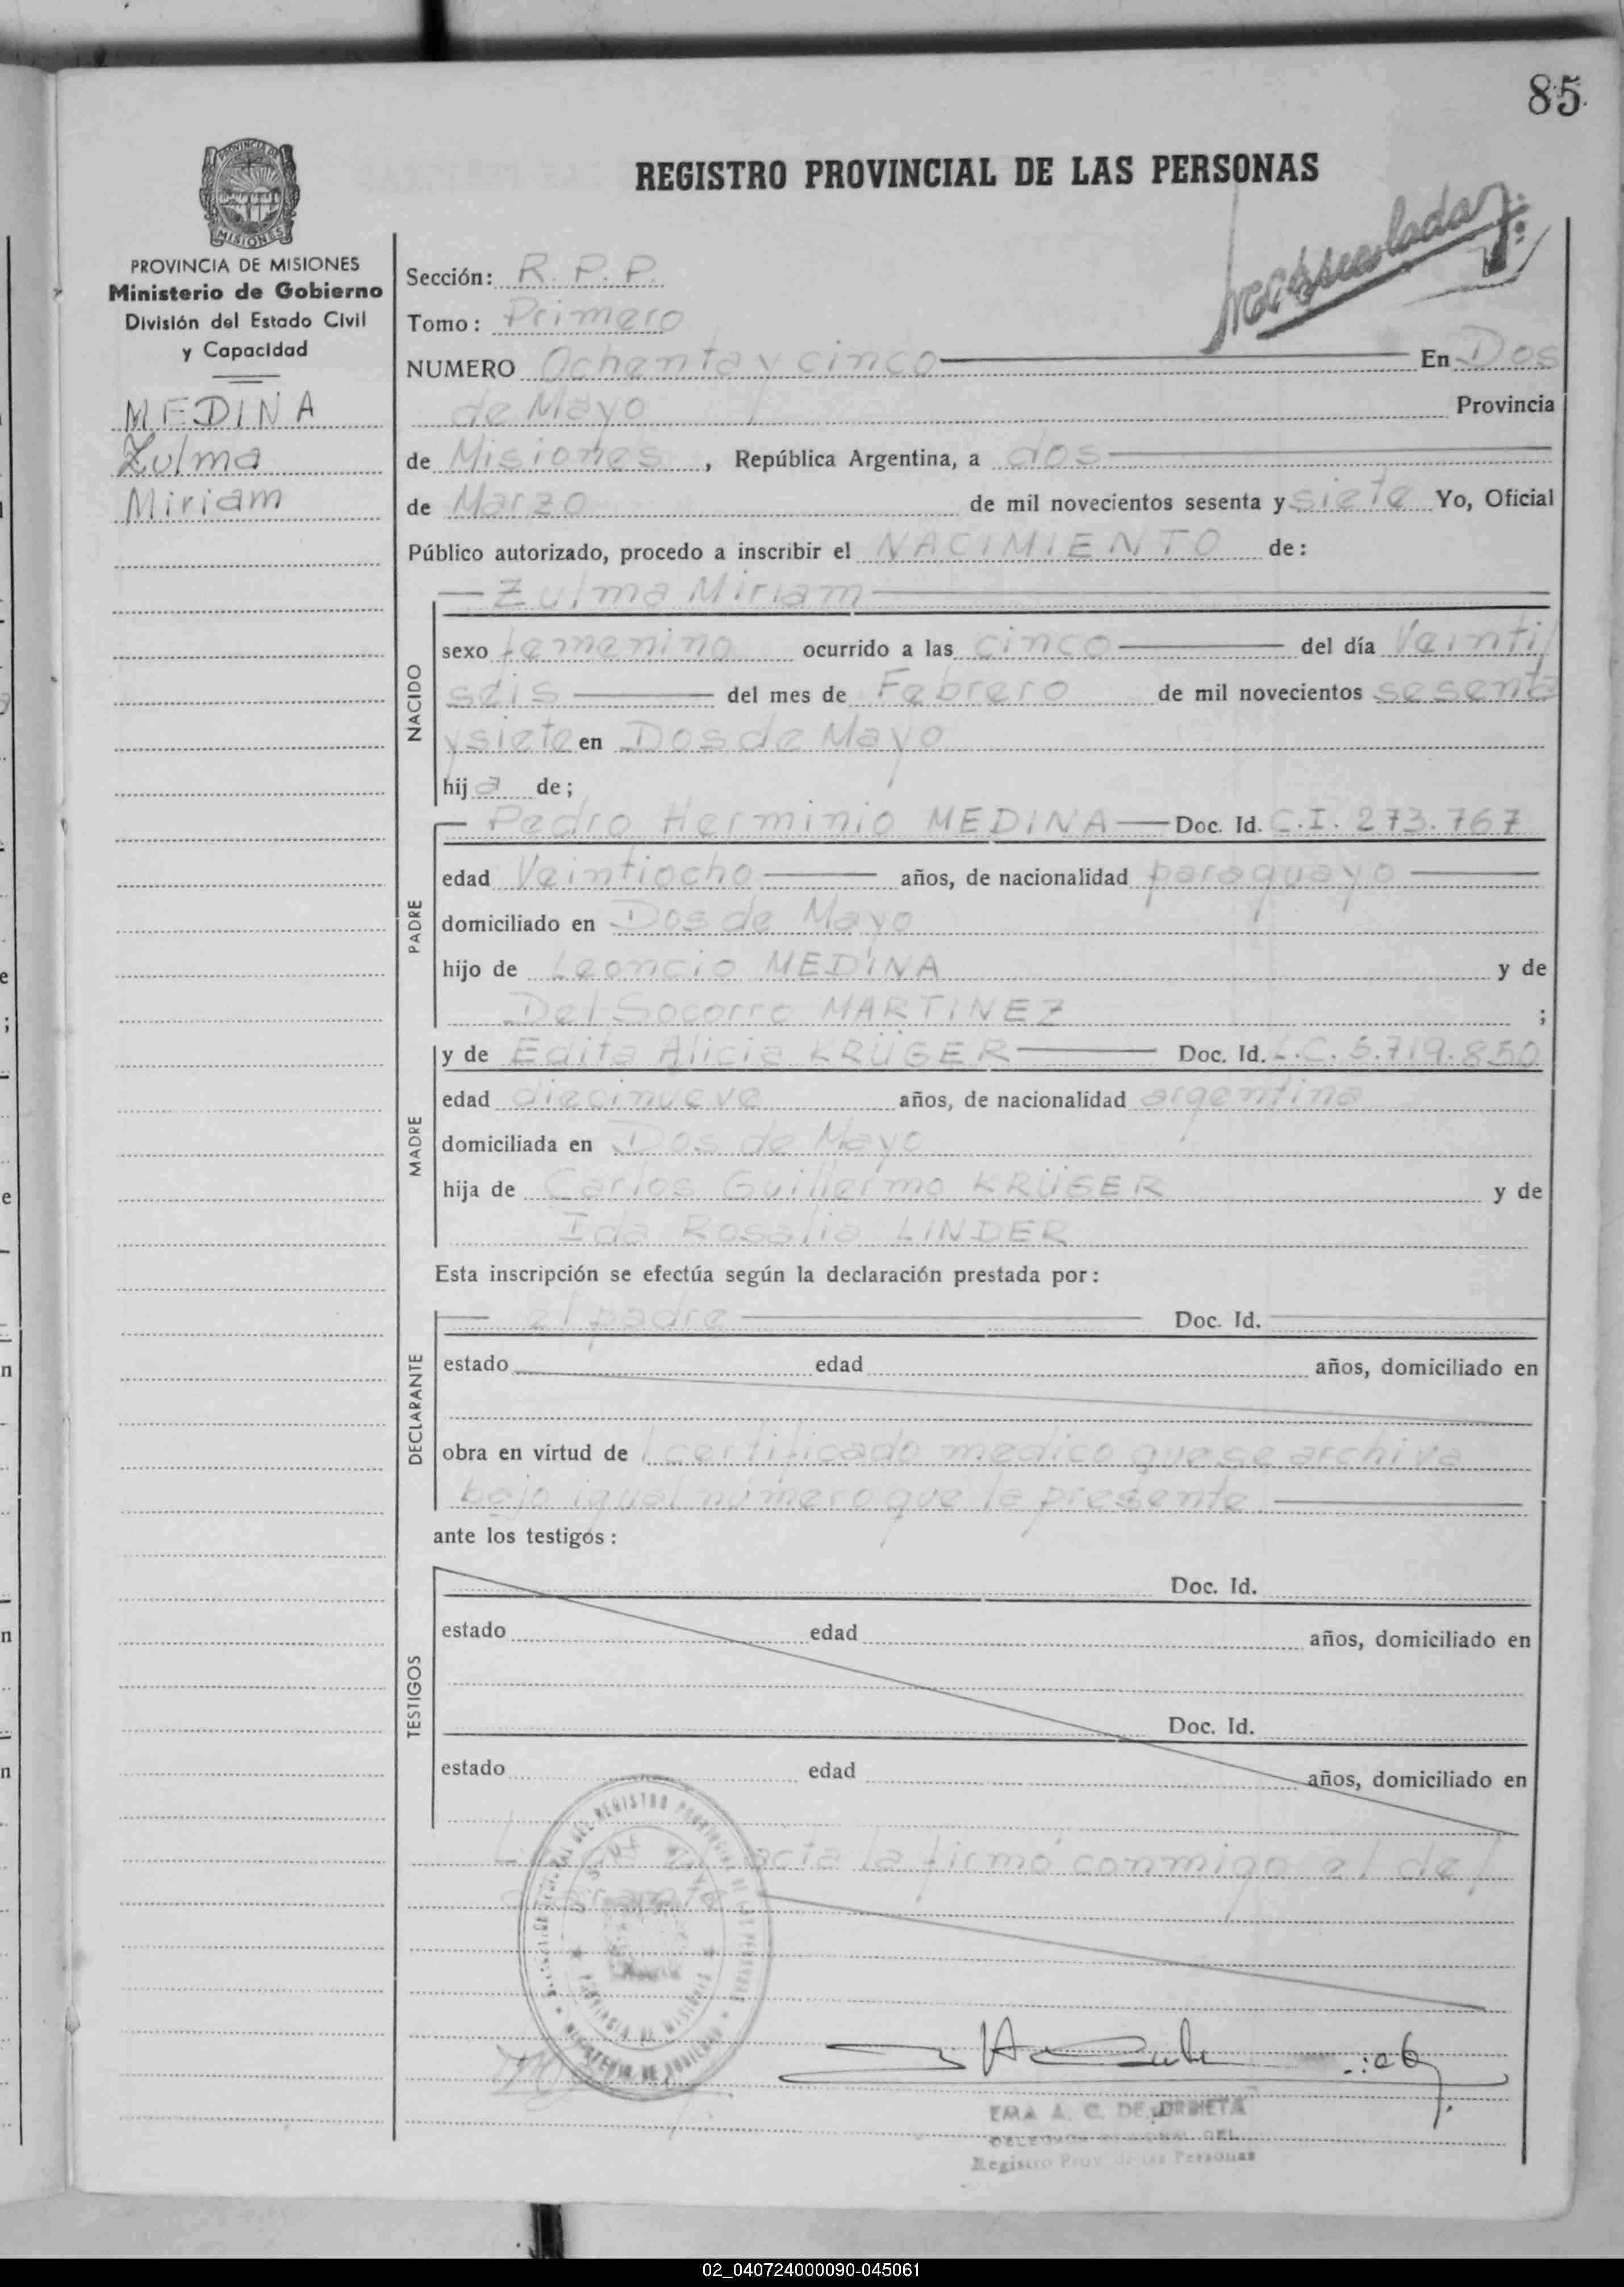 85
REGISTRO PROVINCIAL DE LAS PERSONAS
PROVINCIA DE MISIONES
Ministerio de Gobierno
División del Estado Civil
y Capacidad
MEDINA
Zulma
Miriam
Sección: R. P. P.
Tomo: Primero
NUMERO Ochenta y cinco En Dos
de Mayo Provincia
de Misiones, República Argentina, a dos
de Marzo de mil novecientos sesenta y siete Yo, Oficial
Público autorizado, procedo a inscribir el NACIMIENTO de:
Zulma Miriam
NACIDO
sexo femenino ocurrido a las cinco del día Veinti
seis del mes de Febrero de mil novecientos sesenta
y siete en Dos de Mayo
hija de;
PADRE
Pedro Herminio MEDINA Doc. Id. C.I. 273.767
edad Veintiocho años, de nacionalidad paraguayo
domiciliado en Dos de Mayo
hijo de Leoncio MEDINA y de
Del Socorro MARTINEZ ;
MADRE
y de Edita Alicia KRÜGER Doc. Id. L.C. 5.719.850
edad diecinueve años, de nacionalidad argentina
domiciliada en Dos de Mayo
hija de Carlos Guillermo KRÜGER y de
Ida Rosalia LINDER
Esta inscripción se efectúa según la declaración prestada por:
DECLARANTE
el padre Doc. Id.
estado edad años, domiciliado en
obra en virtud de l certificado medico que se archiva
bajo igual número que la presente
ante los testigos:
TESTIGOS
Doc. Id.
estado edad años, domiciliado en
Doc. Id.
estado edad años, domiciliado en
acta la firmó conmigo el de
PROVINCIA DE MISIONES
EMA A. C. DE URRIETA
Registro Prov. de las Personas
02_040724000090-045061